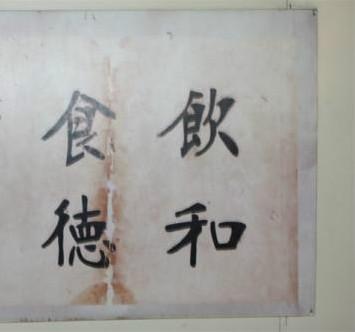 飲和
食德